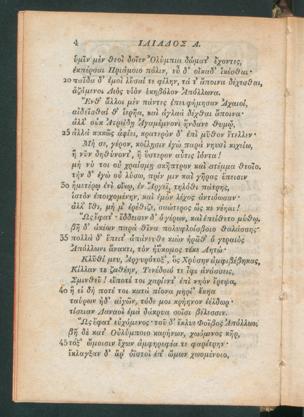 4 ΙΛΙΑΔΟΣ Α.
ὑμῖν μὲν θεοὶ δοῖεν Ὀλύμπια δώματ' ἔχοντες,
ἐκπέρσαι Πριάμοιο πόλιν, εὖ δ' οἴκαδ' ἱκέσθαι·
20 παῖδα δ' ἐμοὶ λῦσαί τε φίλην, τά τ' ἄποινα δέχεσθαι,
ἁζόμενοι Διὸς υἱὸν ἑκηβόλον Ἀπόλλωνα.
Ἔνθ' ἄλλοι μὲν πάντες ἐπευφήμησαν Ἀχαιοί,
αἰδεῖσθαί θ' ἱερῆα, καὶ ἀγλαὰ δέχθαι ἄποινα·
ἀλλ' οὐκ Ἀτρείδῃ Ἀγαμέμνονι ἥνδανε θυμῷ,
25 ἀλλὰ κακῶς ἀφίει, κρατερὸν δ' ἐπὶ μῦθον ἔτελλεν·
Μή σε, γέρον, κοίλῃσιν ἐγὼ παρὰ νηυσὶ κιχείω,
ἢ νῦν δηθύνοντ', ἢ ὕστερον αὖτις ἰόντα!
μή νύ τοι οὐ χραίσμῃ σκῆπτρον καὶ στέμμα θεοῖο.
τὴν δ' ἐγὼ οὐ λύσω, πρίν μιν καὶ γῆρας ἔπεισιν
30 ἡμετέρῳ ἐνὶ οἴκῳ, ἐν Ἄργεϊ, τηλόθι πάτρης,
ἱστὸν ἐποιχομένην, καὶ ἐμὸν λέχος ἀντιόωσαν·
ἀλλ' ἴθι, μή μ' ἐρέθιζε, σαώτερος ὥς κε νέηαι!
Ὣς ἔφατ'· ἔδδεισεν δ' ὁ γέρων, καὶ ἐπείθετο μύθῳ,
βῆ δ' ἀκέων παρὰ θῖνα πολυφλοίσβοιο θαλάσσης·
35 πολλὰ δ' ἔπειτ' ἀπάνευθε κιὼν ἠρᾶθ' ὁ γεραιὸς
Ἀπόλλωνι ἄνακτι, τὸν ἠΰκομος τέκε Λητώ·
Κλῦθί μευ, Ἀργυρότοξ', ὃς Χρύσην ἀμφιβέβηκας,
Κίλλαν τε ζαθέην, Τενέδοιό τε ἶφι ἀνάσσεις,
Σμινθεῦ! εἴποτέ τοι χαρίεντ' ἐπὶ νηὸν ἔρεψα,
40 ἢ εἰ δή ποτέ τοι κατὰ πίονα μηρί' ἔκηα
ταύρων ἠδ' αἰγῶν, τόδε μοι κρήηνον ἐέλδωρ·
τίσειαν Δαναοὶ ἐμὰ δάκρυα σοῖσι βέλεσσιν.
Ὣς ἔφατ' εὐχόμενος· τοῦ δ' ἔκλυε Φοῖβος Ἀπόλλων,
βῆ δὲ κατ' Οὐλύμποιο καρήνων, χωόμενος κῆρ,
45 τόξ' ὤμοισιν ἔχων ἀμφηρεφέα τε φαρέτρην·
ἔκλαγξαν δ' ἄρ' ὀϊστοὶ ἐπ' ὤμων χωομένοιο,